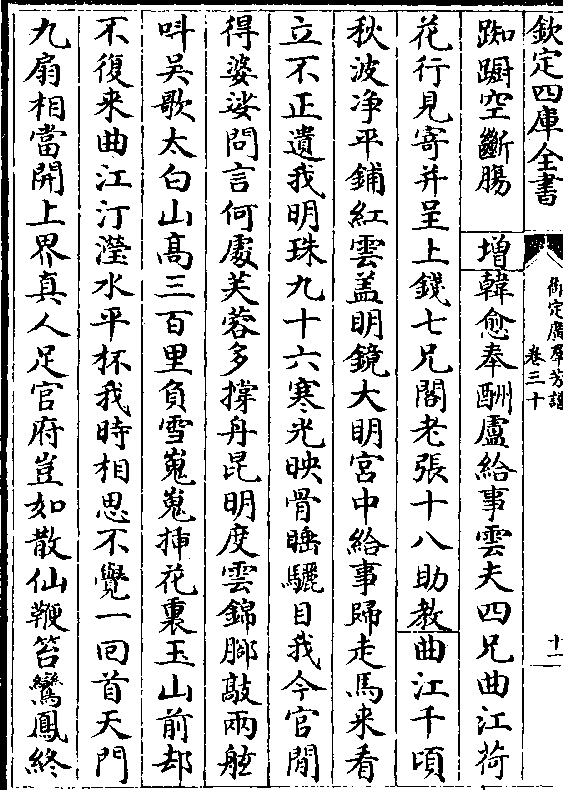 欽定四庫全書
御定廣羣芳譜
卷三十
十一
踟蹰空斷膓　增韓愈奉酬盧給事雲夫四兄曲江荷
花行見寄并呈上錢七兄閣老張十八助教曲江千頃
秋波浄平鋪紅雲盖明鏡大明宫中給事歸走馬来看
立不正遺我明珠九十六寒光映骨睡驪目我今官閒
得婆娑問言何處芙蓉多撐舟昆明度雲錦脚敲兩舷
呌吴歌太白山髙三百里負雪嵬嵬揷花裏玉山前却
不復来曲江汀瀅水平杯我時相思不覺一回首天門
九扇相當開上界真人足官府豈如散仙鞭笞鸞鳳終